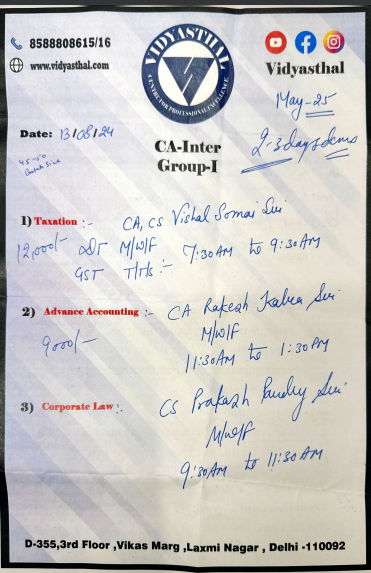 8588808615/16
www.vidyasthal.com
VIDYASTHAL
CENTRE FOR PROFESSIONAL EXCELLENCE
Vidyasthal
May-25
Date: 13/08/24
2-3 days demo
45-50
Batch Size
CA-Inter
Group-I
1) Taxation :- CA, CS Vishal Somai Sir
12,000/- DT M/W/F 7:30AM to 9:30AM
GST T/T/S :-
2) Advance Accounting :- CA Rakesh Kalra Sir
9000/- M/W/F
11:30AM to 1:30PM
3) Corporate Law :- CS Prakash Pandey Sir
M/W/F
9:30AM to 11:30AM
D-355,3rd Floor ,Vikas Marg ,Laxmi Nagar , Delhi -110092